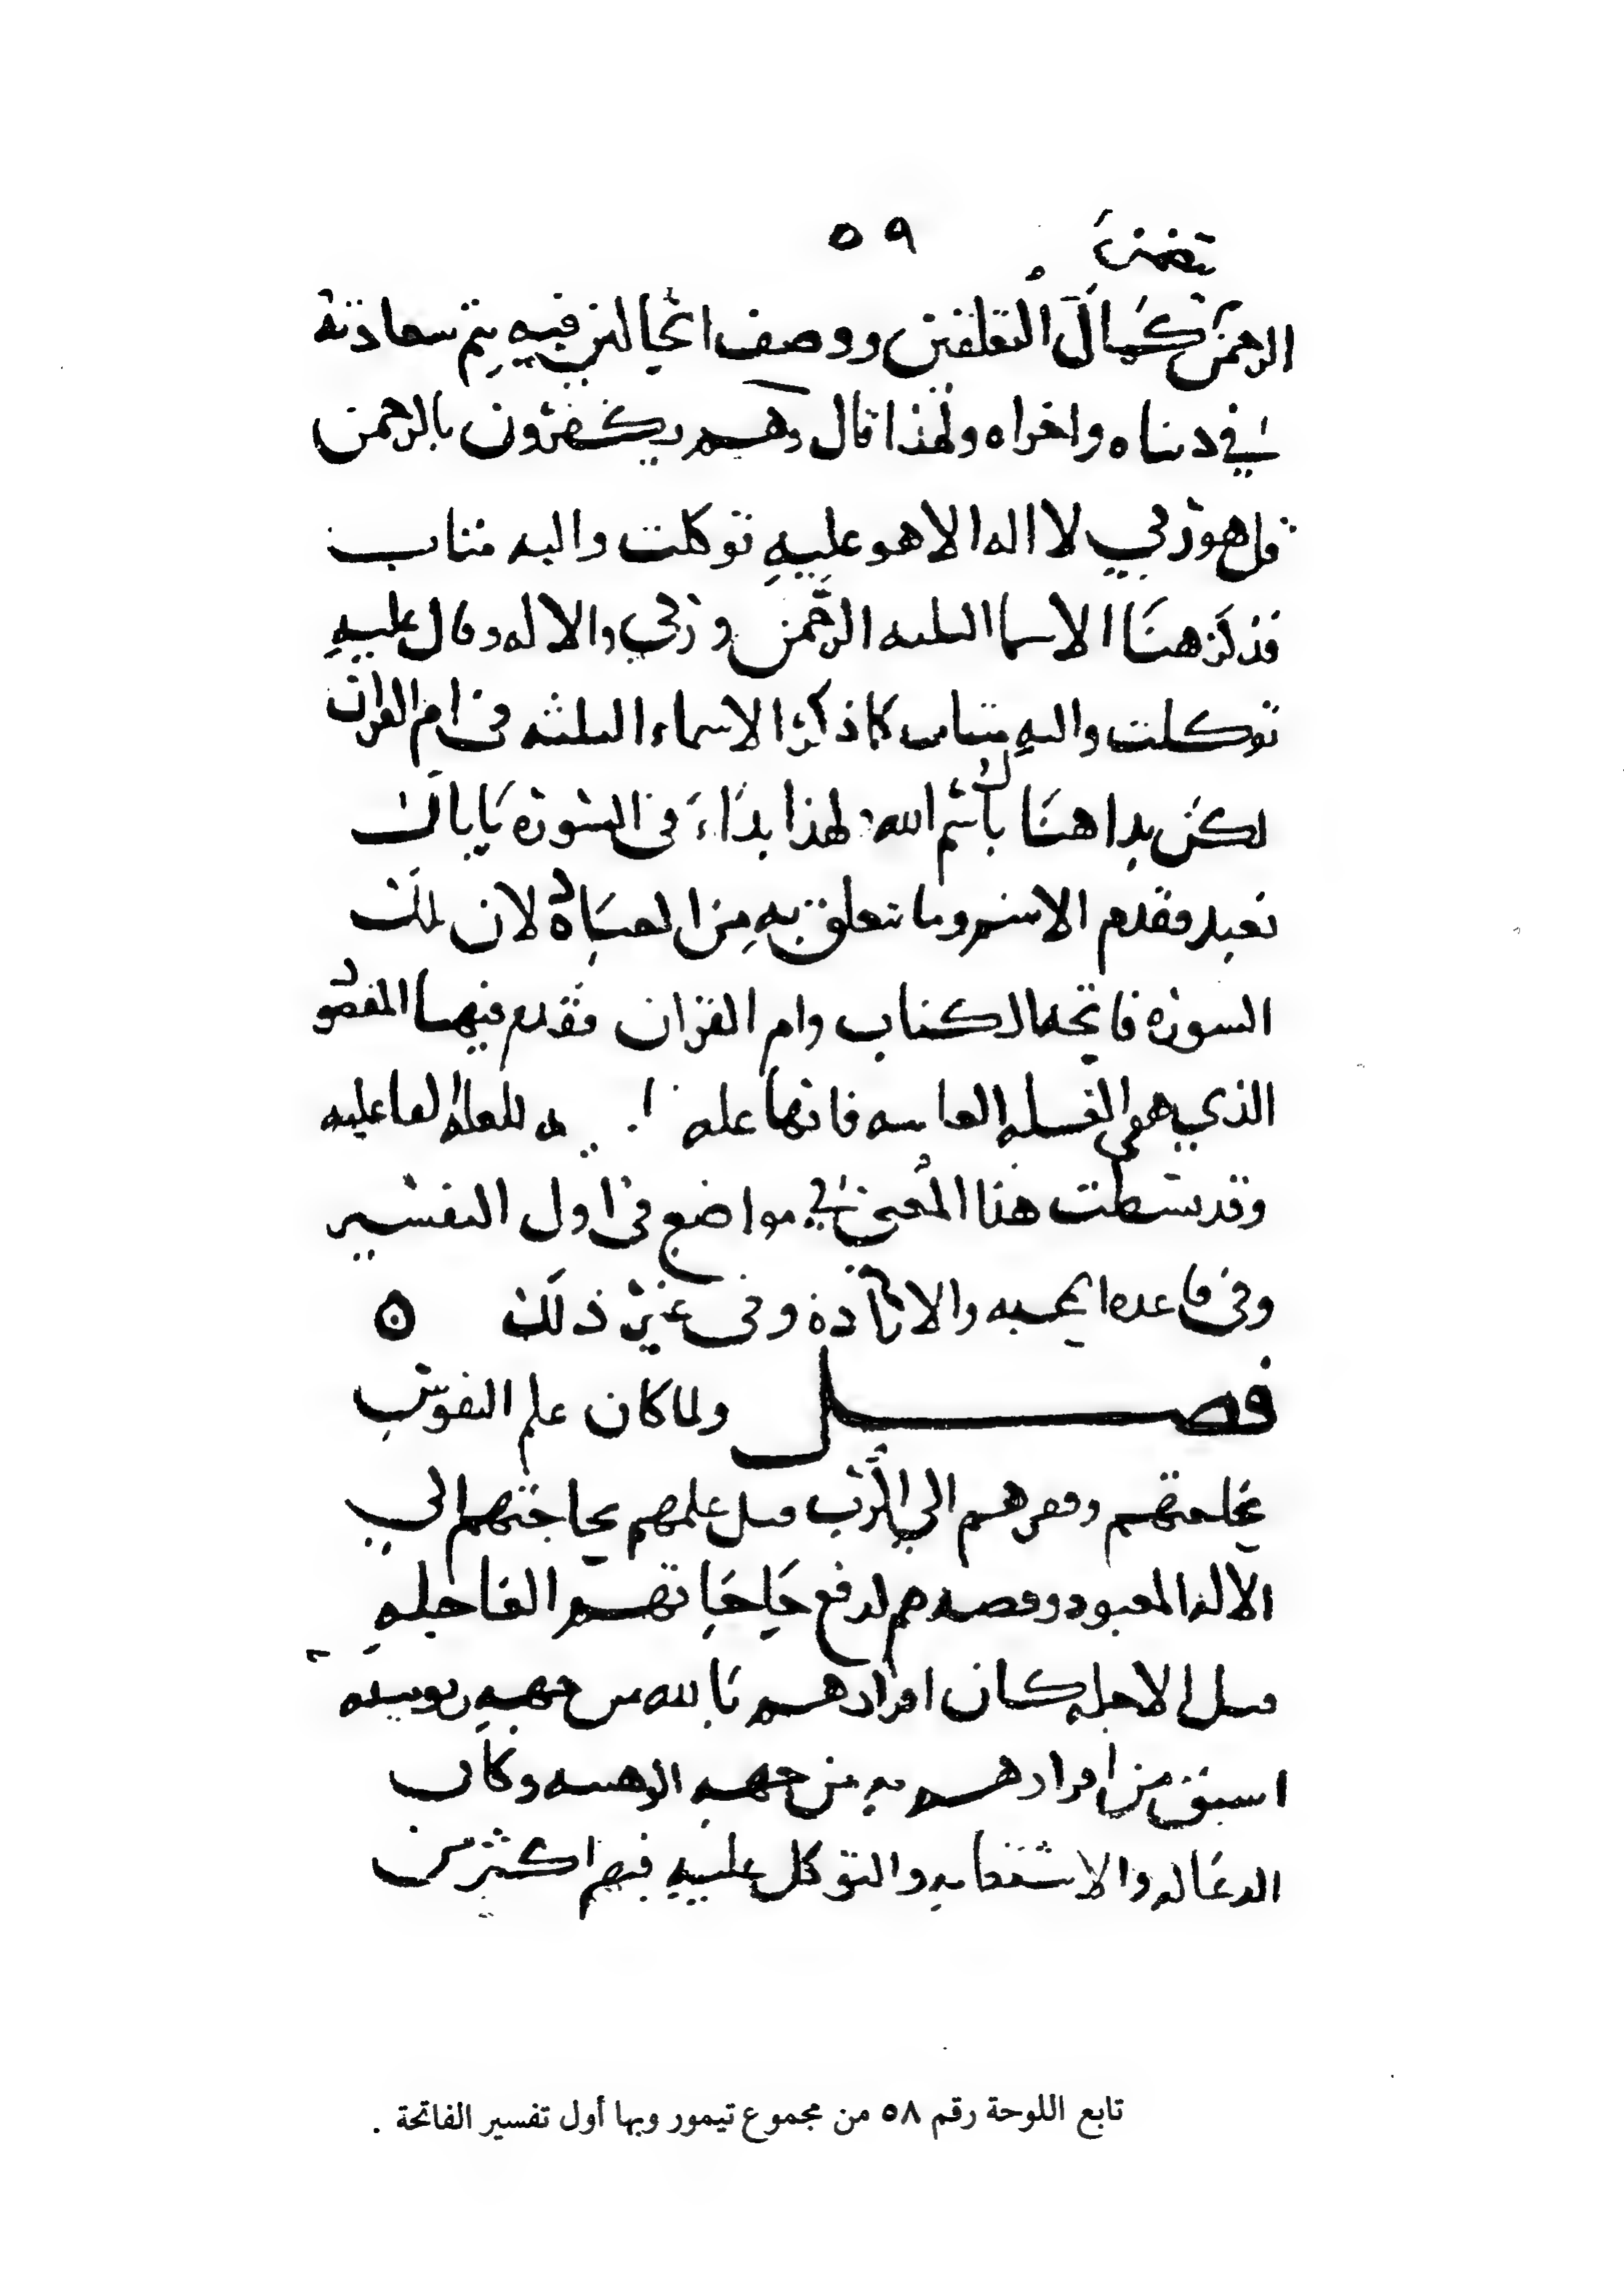 ٥٩
يتضمن
الرحمن كمال التعلقين ووصف الحالين فيه يتم سعادته
في دنياه واخراه ولهذا قال وهم يكفرون بالرحمن
قل هو ربي لا اله الا هو عليه توكلت واليه متاب
فذكر هنا الاسما الثلثه الرحمن وربي والاله وقال عليه
توكلت واليه متاب كما ذكر الاسماء الثلثه في ام القران
لكن بدا هنا باسم الله ولهذا بداء في السوره باياك
نعبد فقدم الاسم وما يتعلق به من العباده لان تلك
السوره فاتحه الكتاب وام القران فقدم فيها المقصود
الذي هو العله الغاييه فانها عله للعله الفاعليه
وقد بسطت هذا المعنى في مواضع في اول التفسير
وفي قاعده المحبه والاراده وفي غير ذلك ٥
فصل ولما كان علم النفوس
بحاجتهم وفقرهم الي الرب قبل علمهم بحاجتهم الي
الاله المعبود وقصدهم لدفع حاجاتهم العاجله
قبل الاجله كان اقرارهم بالله من جهه ربوبيته
اسبق من اقرارهم به من جهه الوهيته وكان
الدعا له والاستعانه به والتوكل عليه فيهم اكثر من
تابع اللوحة رقم ٥٨ من مجموع تيمور وبها أول تفسير الفاتحة .